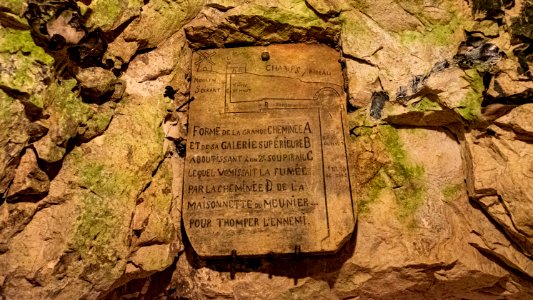 CHAMPS
FORME DE LA GRANDE CHEMINÉE A
ET DE SA GALERIE SUPÉRIEURE B
ABOUTISSANT À UN 2E SOUPIRAIL C
LEQUEL VOMISSAIT LA FUMÉE
PAR LA CHEMINÉE D DE LA
MAISONNETTE DU MEUNIER...
POUR TROMPER L'ENNEMI.